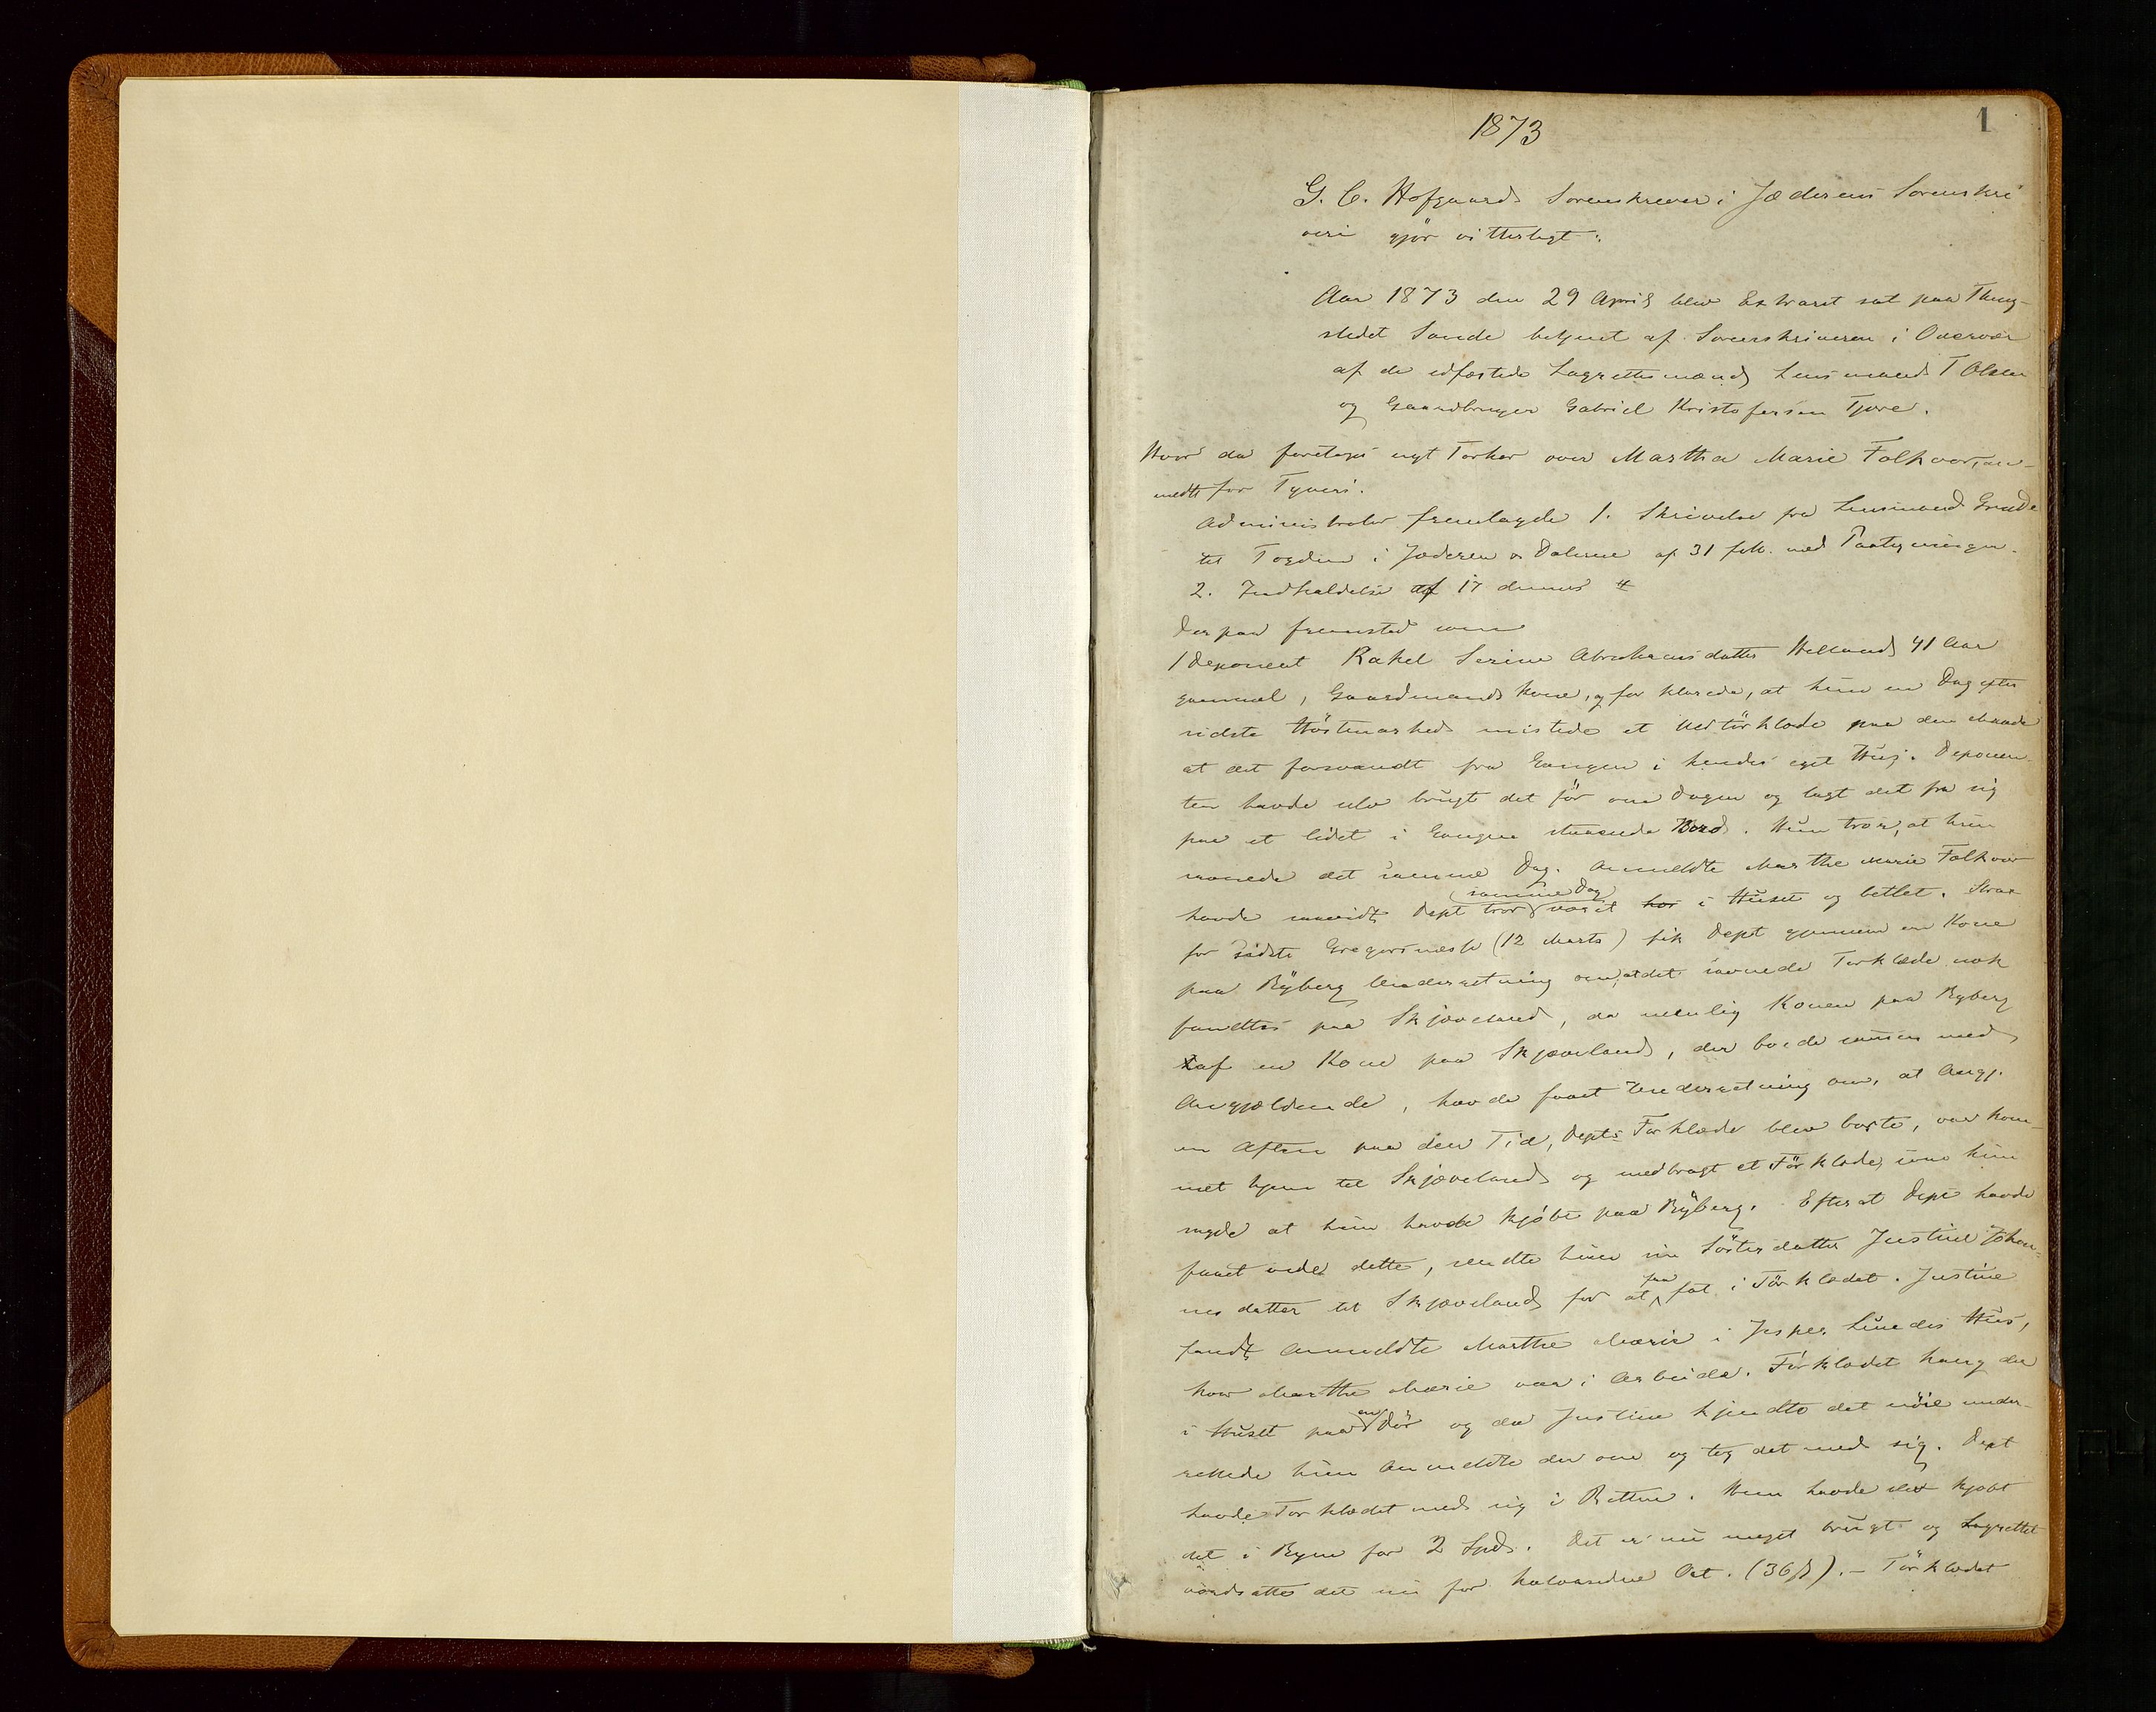 1
1873
G. C. Hofgaard Sorenskriver i Jæderens Sorenskri
veri gjør vitterligt:
Aar 1873 den 29 April blev Extraret sat paa Thing-
stedet Sande betjent af Sorenskriveren i Overvær
af de edfæstede Lagrettesmænd Lensmand T Olsen
og Gaardbruger Gabriel Kristofersen Tjore.
Hvor da foretoges nyt Forhør over Martha Marie Folkvor, an-
meldt for Tyveri.
Administrator fremlagde 1. Skrivelse fra Lensmand Grude
til Fogden i Jæderen & Dalerne af 31 f.M. med Paategninger.
2. Indkaldelse af 17 dennes
Derpaa fremstod som
1 Deponent Rakel Serine Abrahamsdatter Helland 41 Aar
gammel, Gaardmands Kone, og forklarede, at hun en Dag efter
sidste Høstmarked mistede et Uldtörklæde paa den Maade
at det forsvandt fra Gangen i hendes eget Hus. Deponen-
ten havde selv brugt det för om Dagen og lagt det fra sig
paa et lidet i Gangen staaende Bord. Hun tror, at hun
savnede det samme Dag. Anmeldte Marthe Marie Folkvor
samme Dag
havde saavidt Dept tror været har i Huset og betlet. Strax
før sidste Gregoriimesse (12 Marts) fik Dept gjennem en Kone
paa Ryberg Underretning om, at det savnede Tørklæde nok
fandtes paa Skjæveland, da nemlig Konen paa Ryberg
af en Kone paa Skjæveland, der boede sammen med
Angjældende, havde faaet Underretning om, at Angj.
en Aften paa den Tid, Depts Törklæde blev borte, var kom-
met hjem til Skjæveland og medbragt et Törklæde, som hun
sagde at hun havde kjöbt paa Ryberg. Efterat Dept havde
faaet vide dette, sendte hun sin Sösterdatter Justine Johan-
nesdatter til Skjæveland for at faa fat i Törklædet. Justine
fandt Anmeldte Marthe Marie i Jesper Lunedes Hus,
hvor Marthe Marie var i Arbeide. Törklædet hang der
i Huset paa en Dör og da Justine kjendte det nöie under-
rettede hun Anmeldte derom og tog det med sig. Dept
havde Torklædet med sig i Retten. Hun havde selv kjøbt
det i Byen for 2 Spd. Det er nu meget brugt og Lagrettet
værdsatte det nu for halvanden Ort. (36 ß). – Törklædet